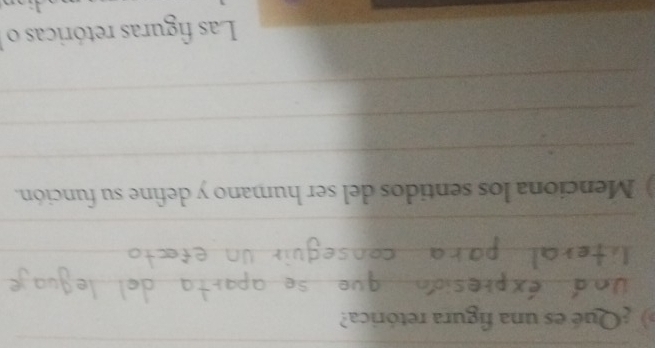 ¿Qué es una figura retórica?
Una expresión que se aparta del leguaje
literal para conseguir un efecto
) Menciona los sentidos del ser humano y define su función.
Las figuras retóricas o